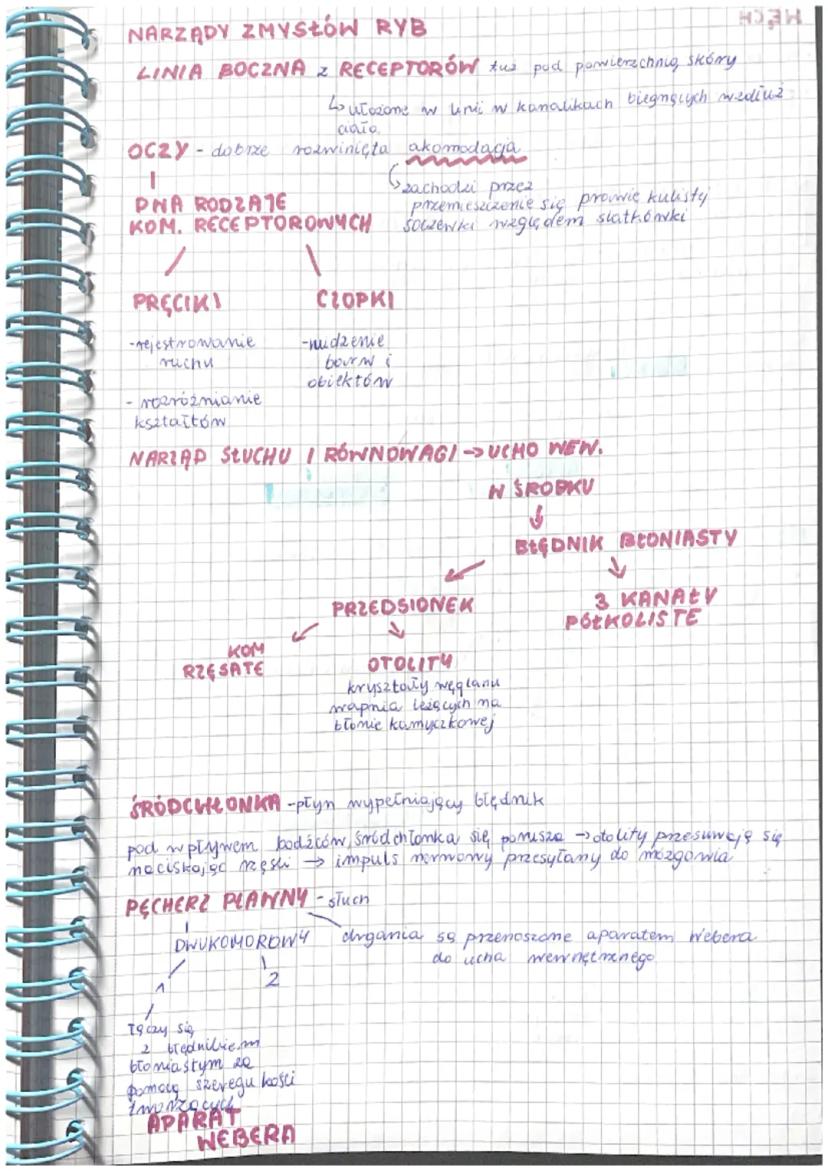 WĘCH
NARZĄDY ZMYSŁÓW RYB
LINIA BOCZNA z RECEPTORÓW tuż pod powierzchnią skóry
↳ ułożone w linii w kanalikach biegnących wzdłuż
ciała
OCZY - dobrze rozwinięta akomodacja
↳ zachodzi przez
przemieszczenie się prawie kulistej
soczewki względem siatkówki
DWA RODZAJE
KOM. RECEPTOROWYCH
PRĘCIKI
CZOPKI
- rejestrowanie
ruchu
- rozróżnianie
kształtów
- widzenie
barw i
obiektów
NARZĄD SŁUCHU I RÓWNOWAGI → UCHO WEW.
W ŚRODKU
BŁĘDNIK BŁONIASTY
PRZEDSIONEK
3 KANAŁY
PÓŁKOLISTE
KOM
RZĘSATE
OTOLITY
kryształy węglanu
wapnia leżących na
błonie kamyczkowej
ŚRÓDCHŁONKA - płyn wypełniający błędnik
pod wpływem bodźców, śródchłonka się porusza → otolity przesuwają się
naciskając rzęski → impuls nerwowy przesyłany do mózgowia
PĘCHERZ PŁAWNY - słuch
DWUKOMOROWY
drgania są przenoszone aparatem Webera
do ucha wewnętrznego
1
2
łączy się
z błędnikiem
błoniastym za
pomocą szeregu kości
tworzących
APARAT
WEBERA